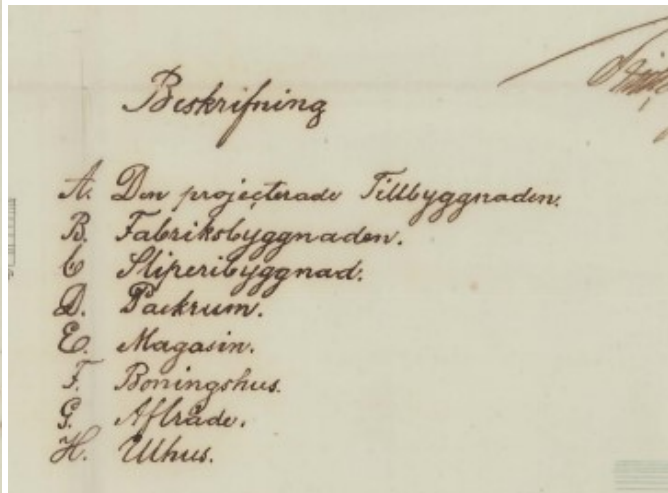 Beskrifning
A. Den projecterade Tillbyggnaden.
B. Fabriksbyggnaden.
C Sliperibyggnad.
D. Packrum.
E. Magasin.
F. Boningshus.
G. Afträde.
H. Uthus.